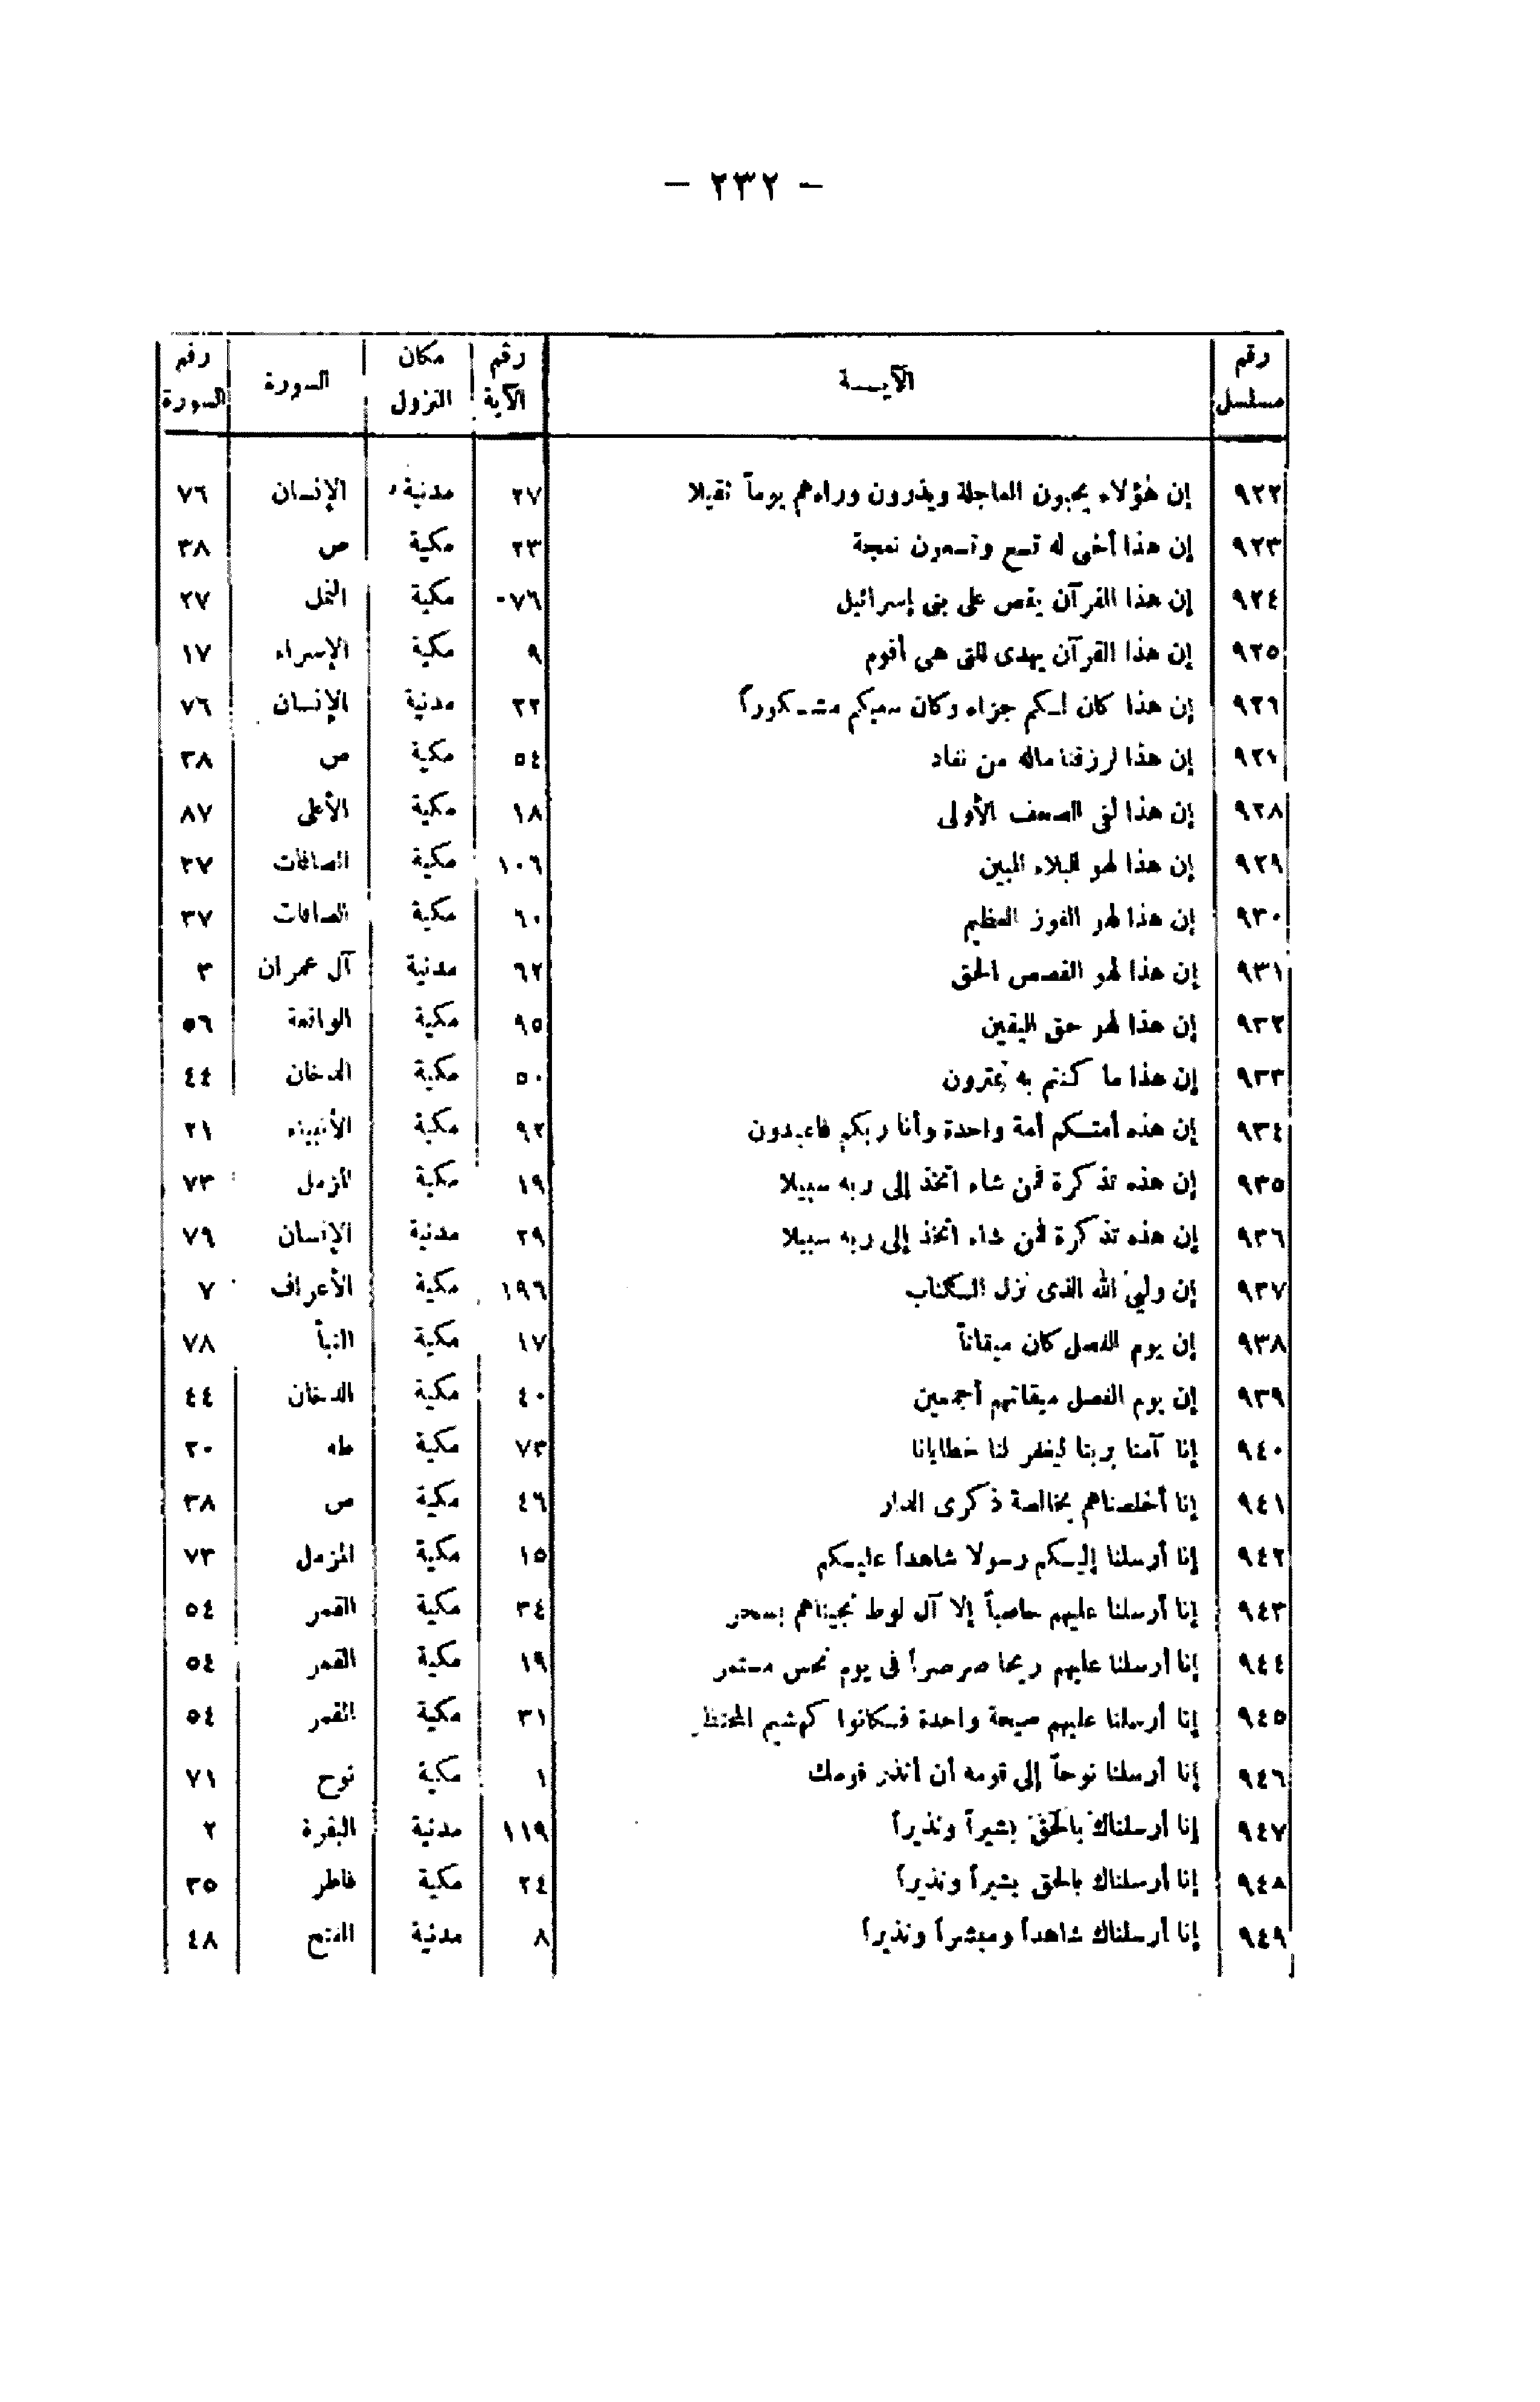 — ٢٣٢ —
رقم مسلسل | الآيــة | رقم الآية | مكان النزول | السورة | رقم السورة
٩٢٢ | إن هؤلاء يحبون العاجلة ويذرون وراءهم يوماً ثقيلا | ٢٧ | مدنية | الإنسان | ٧٦
٩٢٣ | إن هذا أخى له تسع وتسعون نعجة | ٢٣ | مكية | ص | ٣٨
٩٢٤ | إن هذا القرآن يقص على بنى إسرائيل | ٧٦ | مكية | النمل | ٢٧
٩٢٥ | إن هذا القرآن يهدى للتى هى أقوم | ٩ | مكية | الإسراء | ١٧
٩٢٦ | إن هذا كان لـكم جزاء وكان سعيكم مشـكوراً | ٢٢ | مدنية | الإنسان | ٧٦
٩٢٧ | إن هذا لرزقنا ماله من نفاد | ٥٤ | مكية | ص | ٣٨
٩٢٨ | إن هذا لفى الصحف الأولى | ١٨ | مكية | الأعلى | ٨٧
٩٢٩ | إن هذا لهو البلاء المبين | ١٠٦ | مكية | الصافات | ٣٧
٩٣٠ | إن هذا لهو الفوز العظيم | ٦٠ | مكية | الصافات | ٣٧
٩٣١ | إن هذا لهو القصص الحق | ٦٢ | مدنية | آل عمران | ٣
٩٣٢ | إن هذا لهو حق اليقين | ٩٥ | مكية | الواقعة | ٥٦
٩٣٣ | إن هذا ما كنتم به تمترون | ٥٠ | مكية | الدخان | ٤٤
٩٣٤ | إن هذه أمتـكم أمة واحدة وأنا ربكم فاعبدون | ٩٢ | مكية | الأنبياء | ٢١
٩٣٥ | إن هذه تذكرة فمن شاء اتخذ إلى ربه سبيلا | ١٩ | مكية | المزمل | ٧٣
٩٣٦ | إن هذه تذكرة فمن شاء اتخذ إلى ربه سبيلا | ٢٩ | مدنية | الإنسان | ٧٩
٩٣٧ | إن وليىّ الله الذى نزل الـكتاب | ١٩٦ | مكية | الأعراف | ٧
٩٣٨ | إن يوم الفصل كان ميقاتاً | ١٧ | مكية | النبأ | ٧٨
٩٣٩ | إن يوم الفصل ميقاتهم أجمعين | ٤٠ | مكية | الدخان | ٤٤
٩٤٠ | إنا آمنا بربنا ليغفر لنا خطايانا | ٧٣ | مكية | طه | ٢٠
٩٤١ | إنا أخلصناهم بخالصة ذكرى الدار | ٤٦ | مكية | ص | ٣٨
٩٤٢ | إنا أرسلنا إليـكم رسولا شاهداً عليـكم | ١٥ | مكية | المزمل | ٧٣
٩٤٣ | إنا أرسلنا عليهم حاصباً إلا آل لوط نجيناهم بسحر | ٣٤ | مكية | القمر | ٥٤
٩٤٤ | إنا أرسلنا عليهم ريحا صرصراً فى يوم نحس مستمر | ١٩ | مكية | القمر | ٥٤
٩٤٥ | إنا أرسلنا عليهم صيحة واحدة فـكانوا كهشيم المحتظر | ٣١ | مكية | القمر | ٥٤
٩٤٦ | إنا أرسلنا نوحاً إلى قومه أن أنذر قومك | ١ | مكية | نوح | ٧١
٩٤٧ | إنا أرسلناك بالحق بشيراً ونذيراً | ١١٩ | مدنية | البقرة | ٢
٩٤٨ | إنا أرسلناك بالحق بشيراً ونذيراً | ٢٤ | مكية | فاطر | ٣٥
٩٤٩ | إنا أرسلناك شاهداً ومبشراً ونذيراً | ٨ | مدنية | الفتح | ٤٨